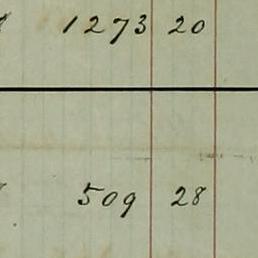 1273 20
509 28